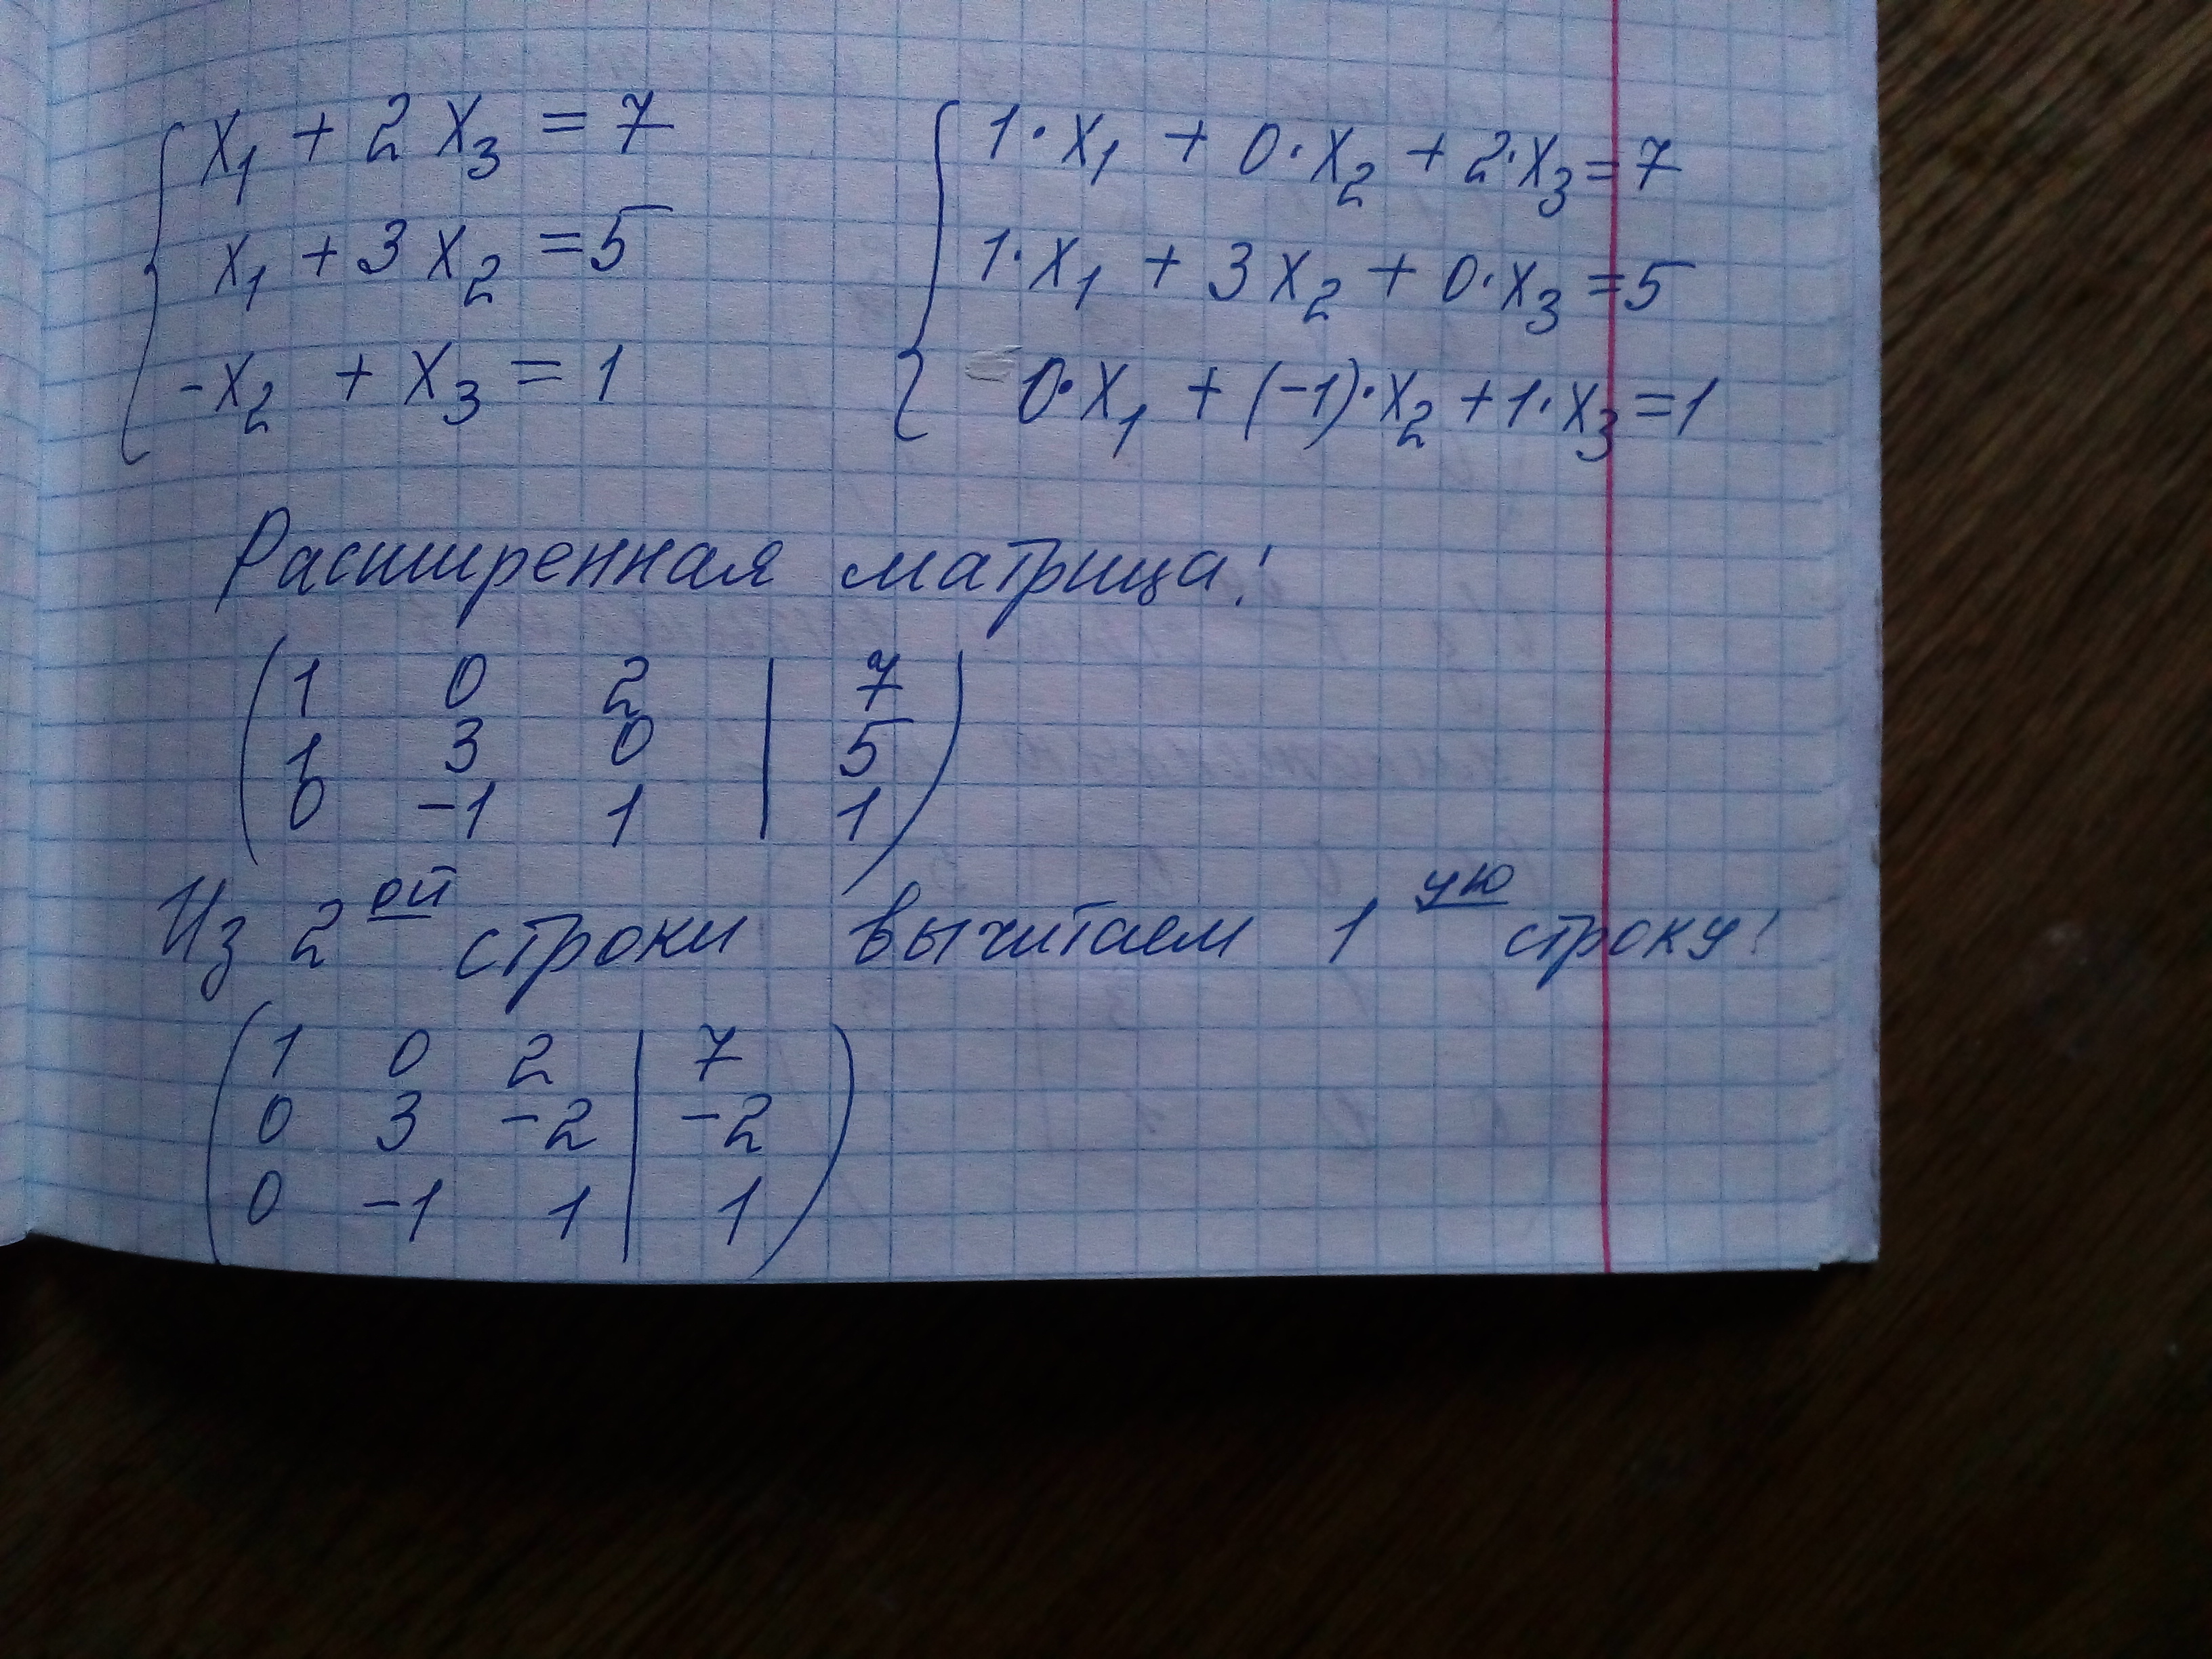 x₁ + 2 x₃ = 7
x₁ + 3 x₂ = 5
-x₂ + x₃ = 1
1·x₁ + 0·x₂ + 2·x₃ = 7
1·x₁ + 3x₂ + 0·x₃ = 5
0·x₁ + (-1)·x₂ + 1·x₃ = 1
Расширенная матрица:
1 0 2 | 7
1 3 0 | 5
0 -1 1 | 1
Из 2ой строки вычитаем 1ую строку:
1 0 2 | 7
0 3 -2 | -2
0 -1 1 | 1